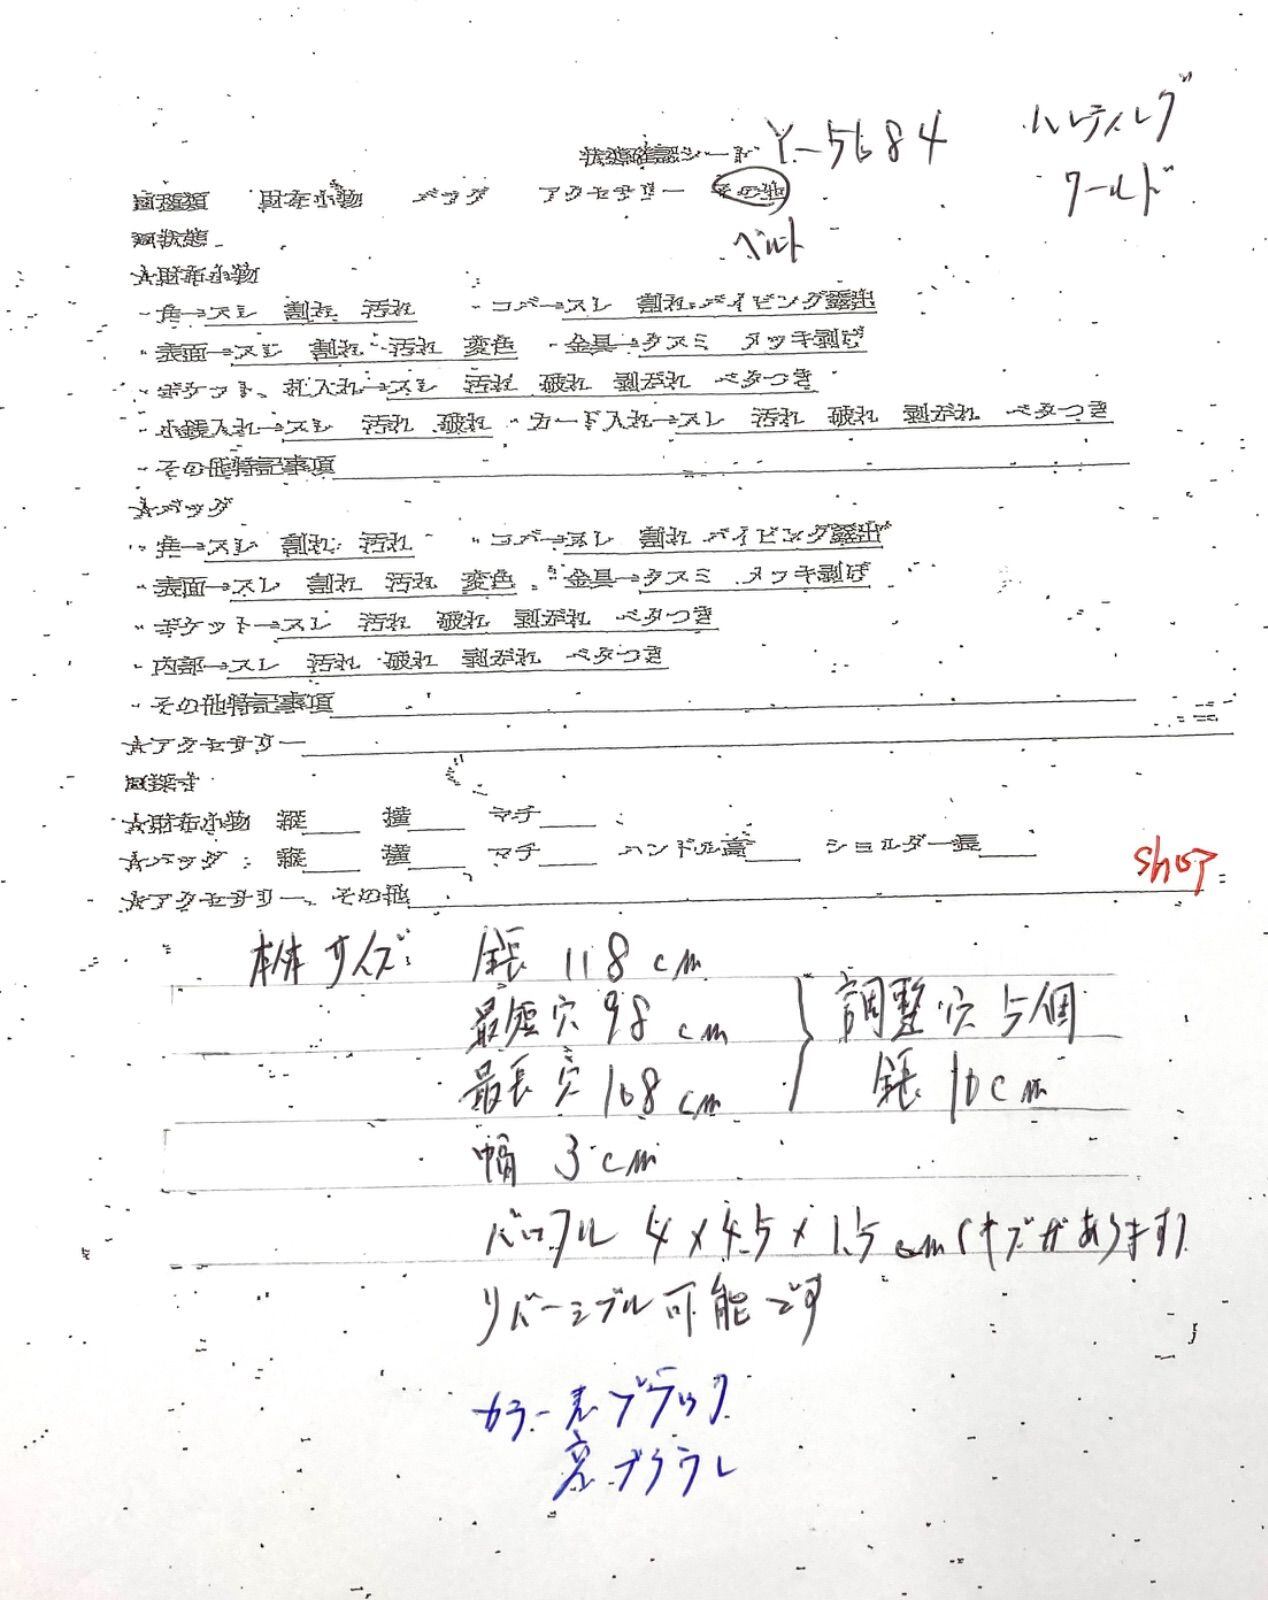 状態確認シート Y-5684 ハンティング
ワールド
■種類 財布小物 バッグ アクセサリー その他
ベルト
■状態
☆財布小物
・角→スレ 割れ 汚れ ・コバ→スレ 割れ パイピング露出
・表面→スレ 割れ 汚れ 変色 ・金具→クスミ メッキ剥げ
・ポケット、札入れ→スレ 汚れ 破れ 剥がれ ベタつき
・小銭入れ→スレ 汚れ 破れ ・カード入れ→スレ 汚れ 破れ 剥がれ ベタつき
・その他特記事項
☆バッグ
・角→スレ 割れ 汚れ ・コバ→スレ 割れ パイピング露出
・表面→スレ 割れ 汚れ 変色 ・金具→クスミ メッキ剥げ
・ポケット→スレ 汚れ 破れ 剥がれ ベタつき
・内部→スレ 汚れ 破れ 剥がれ ベタつき
・その他特記事項
☆アクセサリー
■採寸
☆財布小物 縦 横 マチ
☆バッグ 縦 横 マチ ハンドル高 ショルダー長
shop
☆アクセサリー、その他
本体サイズ: 全長 118cm
最短穴 98cm
最長穴 108cm
調整穴 5個
全長 10cm
幅 3cm
バックル 4×4.5×1.5cm(キズがあります)
リバーシブル可能です
カラー表ブラック
裏ブラウン